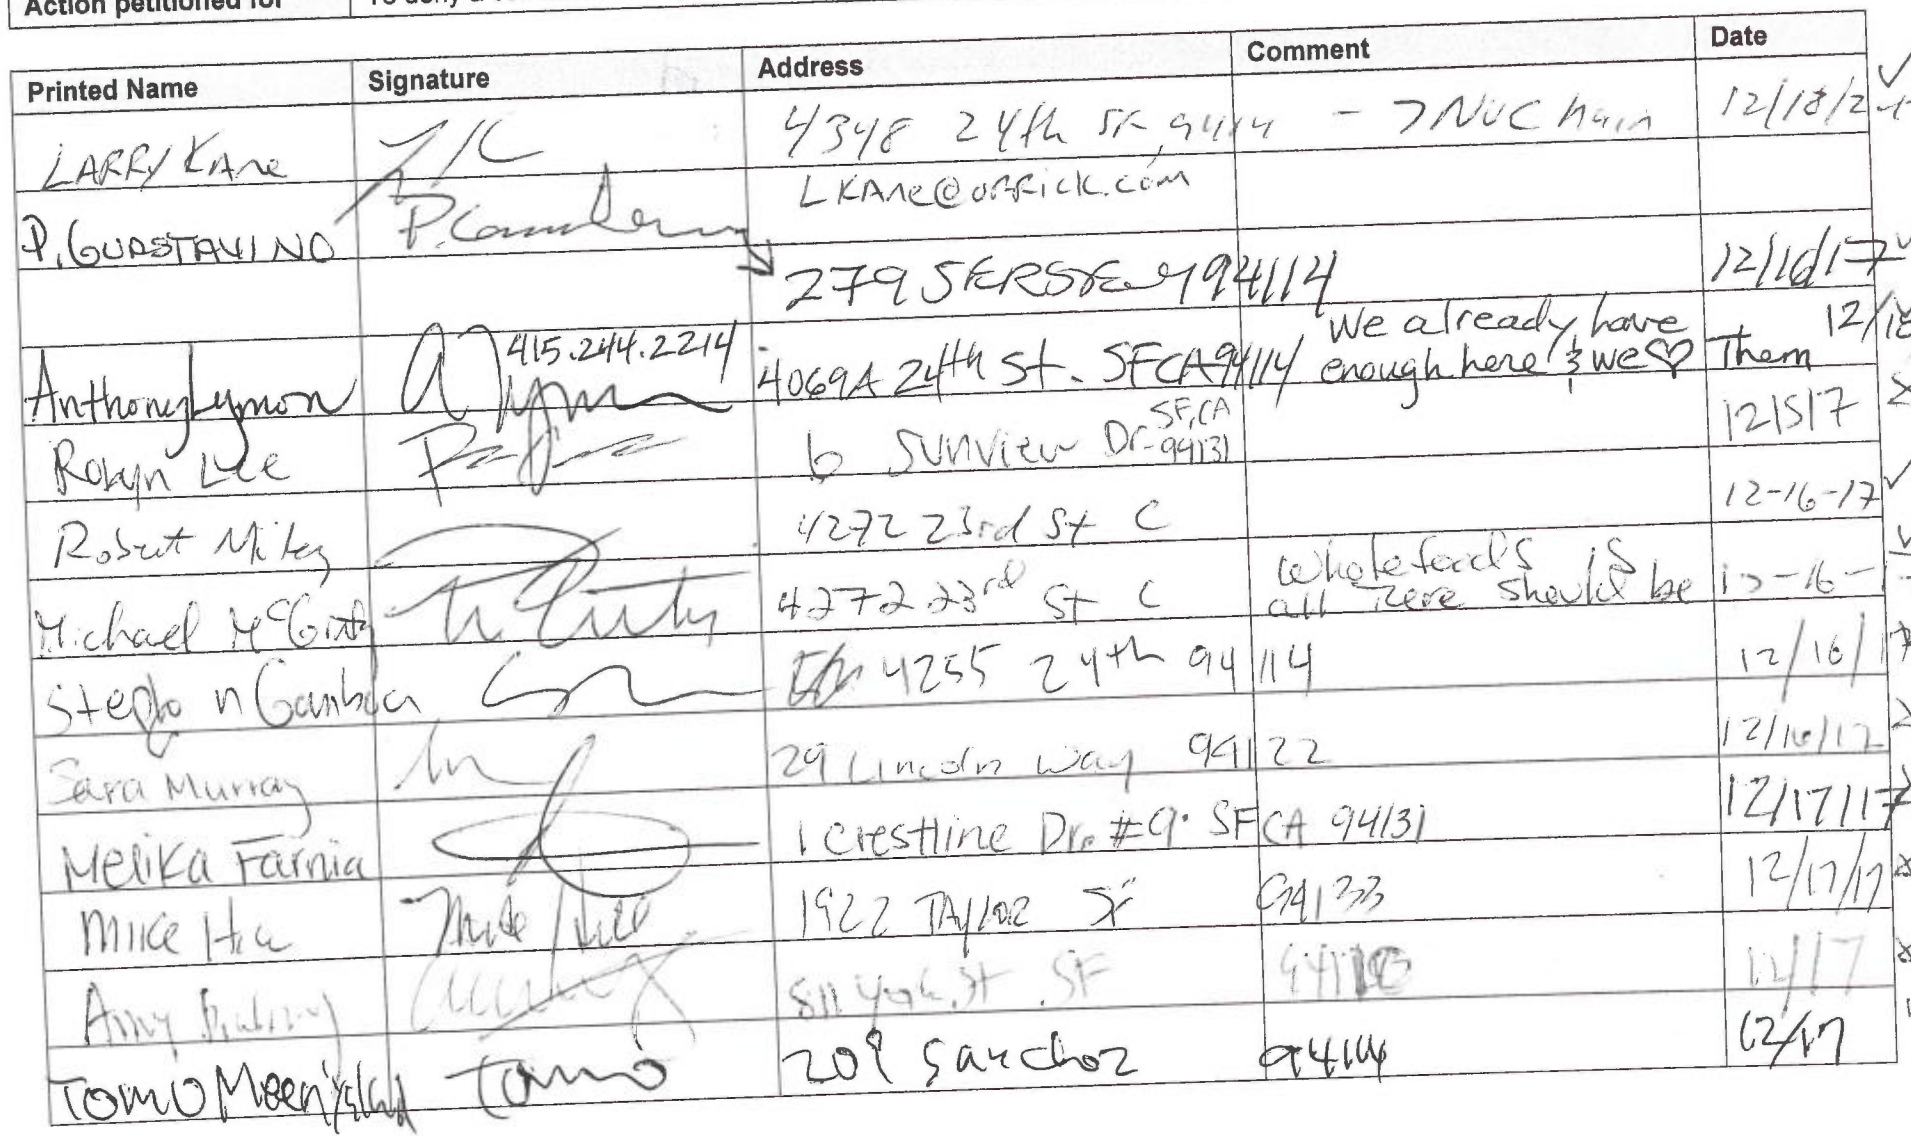 Action petitioned for
Printed Name Signature Address Comment Date
LARRY KANE 4348 24th St, 94114 - 12/18/2
LKANE@ORRICK.COM
P. GUASTAVINO
279 94114 12/16/17
Anthony Lymon 415.244.2214 4069A 24th St. SFCA 94114 We already have enough here & we ♡ Them 12/16
Robyn Lee 6 Sunview Dr. SF, CA 94131 12/5/7
Robert 4272 23rd St C 12-16-17
Michael 4272 23rd St C Whole foods is all there should be 12-16-
Stephen 4255 24th 94114 12/16/17
Sara Murray 29 Lincoln Way 94122 12/16/17
Melika Farnia 1 Crestline Dr. #9. SF CA 94131 12/17/17
Mike Hill Mike Hill 1922 TAYLOR SF 94133 12/17/17
Amy 811 York St. SF 94110 12/17
TOMO Tomo 209 Sanchez 94114 12/17